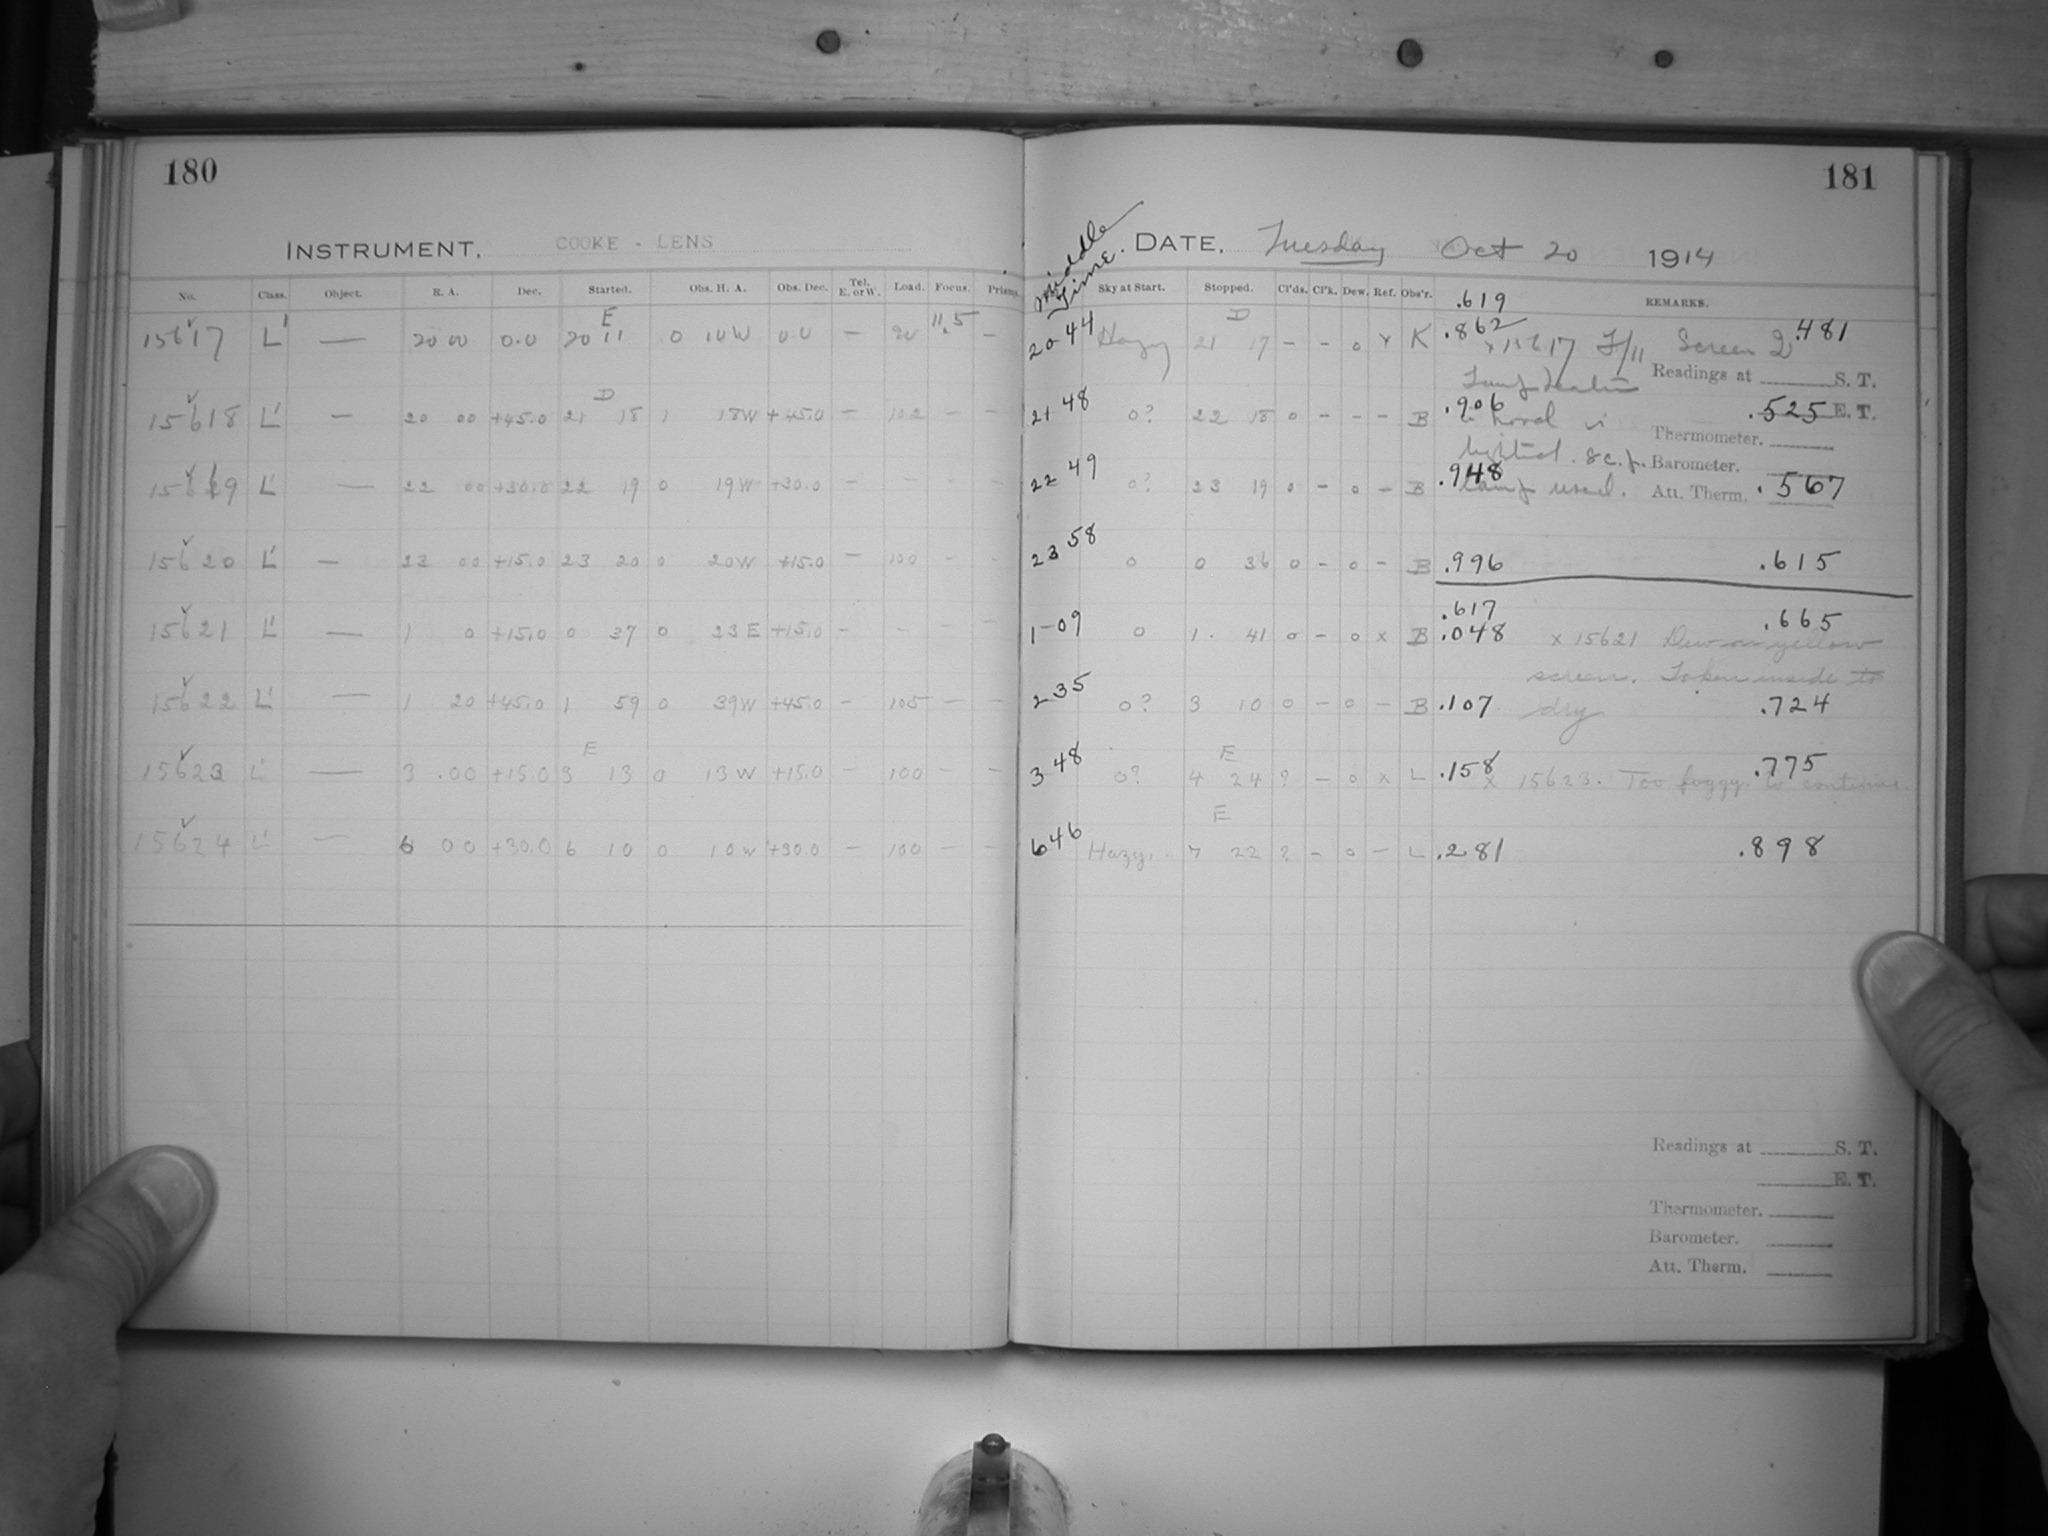 180
INSTRUMENT. COOKE - LENS
No. Class. Object. R. A. Dec. Started. Obs. H. A. Obs. Dec. Tel. E. or W. Load. Focus. Prisms.
E 11.5
15617 L' — 20 00 0.0 20 11 0 10 W 0.0 — 90 —
D
15618 L' — 20 00 +45.0 21 18 1 18W +45.0 — 102 — —
15619 L' — 22 00 +30.0 22 19 0 19W +30.0 — — — —
15620 L' — 23 00 +15.0 23 20 0 20W +15.0 — 100 — -
15621 L' — 1 0 +15.0 0 37 0 23 E +15.0 - - - -
15622 L' — 1 20 +45.0 1 59 0 39W +45.0 — 105 — —
E
15623 L' — 3 .00 +15.0 3 13 0 13 W +15.0 — 100 — —
15624 L' — 6 00 +30.0 6 10 0 10 W +30.0 — 100 — —
181
Middle Time. DATE. Tuesday Oct 20 1914
Sky at Start. Stopped. Cl'ds. Cl'k. Dew. Ref. Obs'r. REMARKS.
.619
D
20 44 Hazy 21 17 - - 0 x K .862 x 15617 F/11 Screen 2 .481
Readings at S. T.
21 48 0? 22 18 0 - - - B .906 .525 E. T.
Thermometer.
Barometer.
22 49 0? 23 19 0 - 0 - B .948 lamp used. Att. Therm. .567
23 58 0 0 36 0 - 0 - B .996 .615
.617
1-09 0 1. 41 0 - 0 x B .048 x 15621 Dew on yellow .665
screen. Taken inside to
2 35 0? 3 10 0 - 0 - B .107 dry .724
E
3 48 0? 4 24 ? - 0 x L .158 x 15623. Too foggy to continue. .775
E
6 46 Hazy. 7 22 ? - 0 - L .281 .898
Readings at S. T.
E. T.
Thermometer.
Barometer.
Att. Therm.